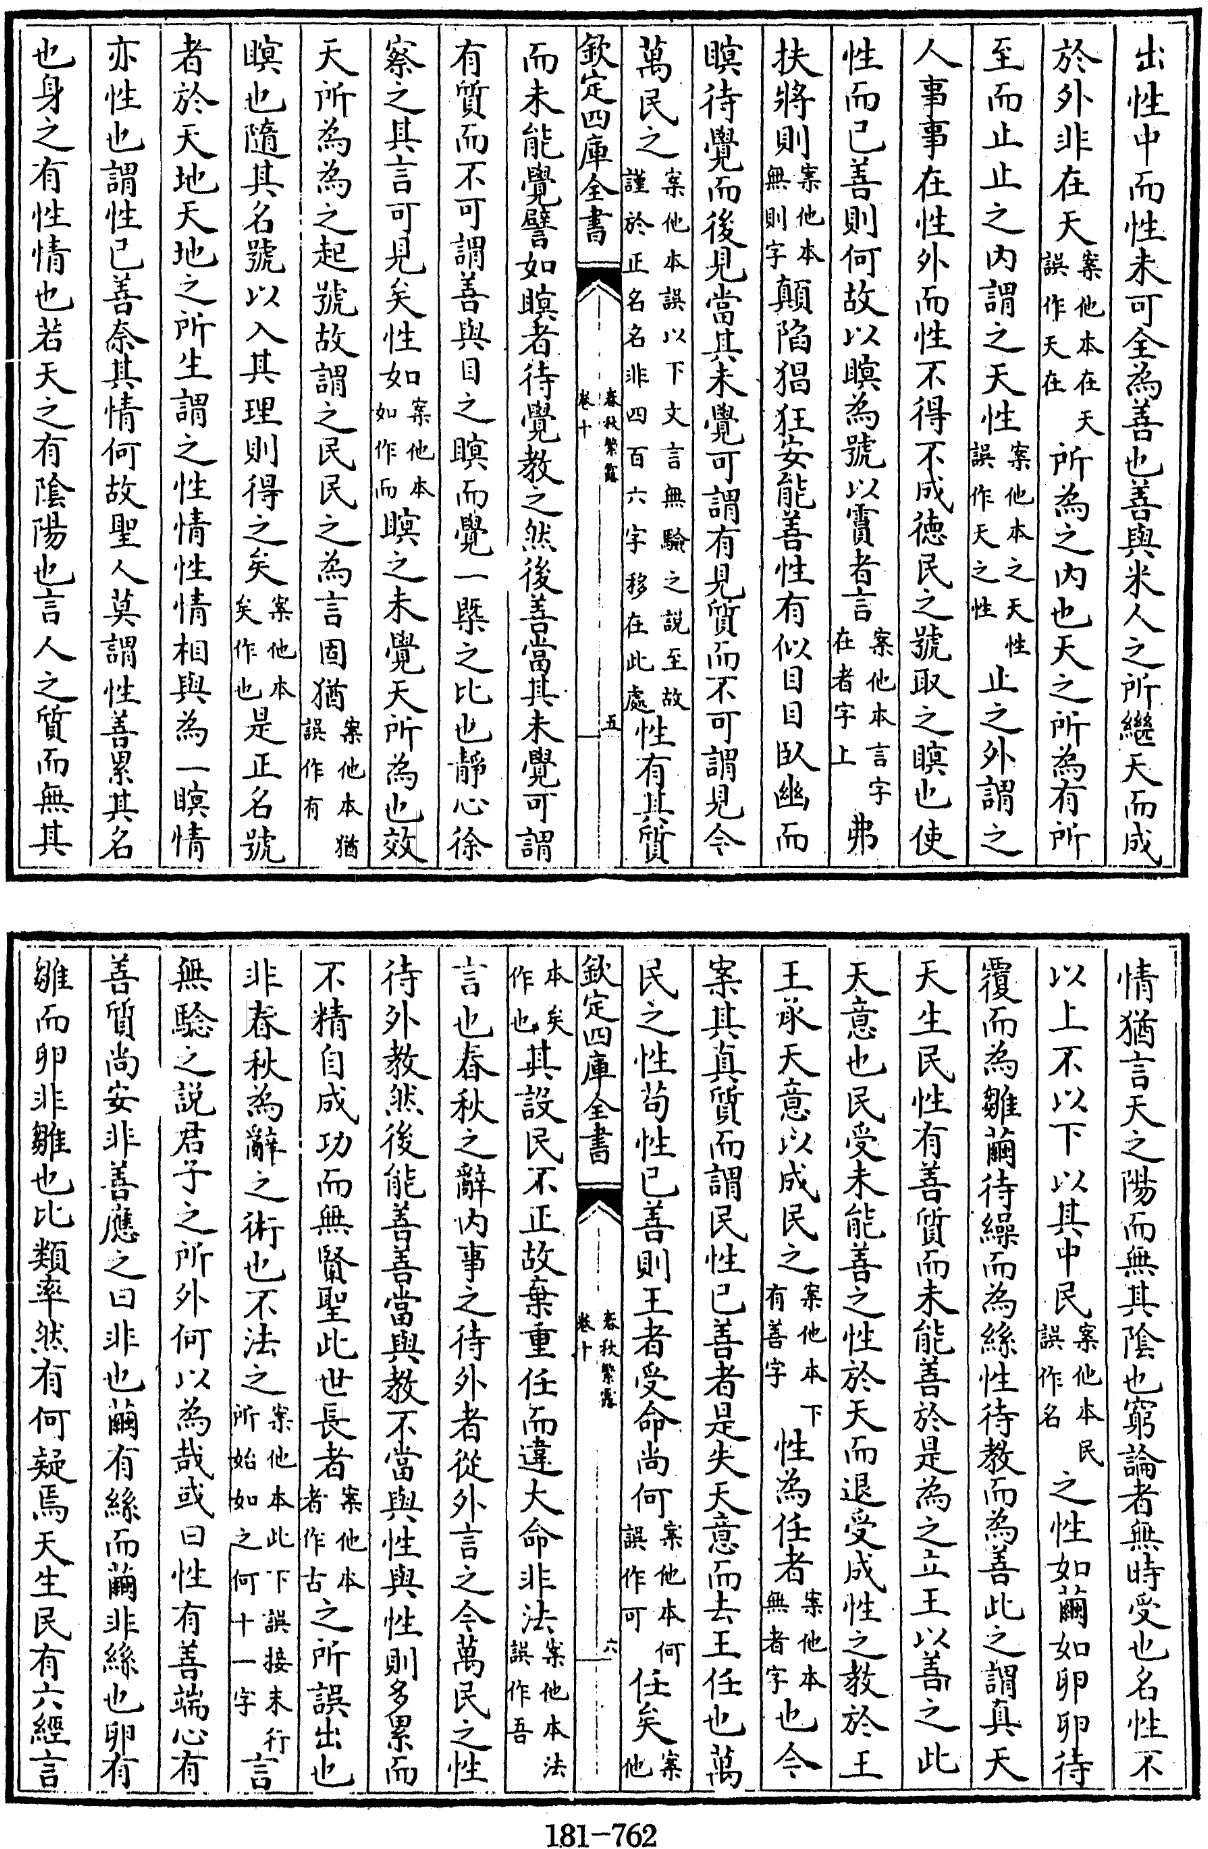 出性中而性未可全為善也善與米人之所繼天而成
於外非在天案他本在天誤作天在所為之内也天之所為有所
至而止止之内謂之天性案他本之天性誤作天之性止之外謂之
人事事在性外而性不得不成徳民之號取之瞑也使
性而已善則何故以瞑為號以霣者言案他本言字在者字上弗
扶將則案他本無則字顛陷猖狂安能善性有似目目臥幽而
瞑待覺而後見當其未覺可謂有見質而不可謂見今
萬民之案他本誤以下文言無驗之説至故謹於正名名非四百六字移在此處性有其質
欽定四庫全書
春秋繁露
卷十
五
而未能覺譬如瞑者待覺教之然後善當其未覺可謂
有質而不可謂善與目之瞑而覺一槩之比也靜心徐
察之其言可見矣性如案他本如作而瞑之未覺天所為也效
天所為為之起號故謂之民民之為言固猶案他本猶誤作有
瞑也隨其名號以入其理則得之矣案他本矣作也是正名號
者於天地天地之所生謂之性情性情相與為一瞑情
亦性也謂性已善奈其情何故聖人莫謂性善累其名
也身之有性情也若天之有陰陽也言人之質而無其
情猶言天之陽而無其陰也窮論者無時受也名性不
以上不以下以其中民案他本民誤作名之性如繭如卵卵待
覆而為雛繭待繰而為絲性待教而為善此之謂真天
天生民性有善質而未能善於是為之立王以善之此
天意也民受未能善之性於天而退受成性之教於王
王承天意以成民之案他本下有善字性為任者案他本無者字也今
案其真質而謂民性已善者是失天意而去王任也萬
民之性茍性已善則王者受命尚何案他本何誤作可任矣案他
欽定四庫全書
春秋繁露
卷十
六
本矣作也其設民不正故棄重任而違大命非法案他本法誤作吾
言也春秋之辭内事之待外者從外言之今萬民之性
待外教然後能善善當與教不當與性與性則多累而
不精自成功而無賢聖此世長者案他本者作古之所誤出也
非春秋為辭之術也不法之案他本此下誤接末行所始如之何十一字言
無驗之説君子之所外何以為哉或曰性有善端心有
善質尚安非善應之曰非也繭有絲而繭非絲也卵有
雛而卵非雛也比類率然有何疑焉天生民有六經言
181-762